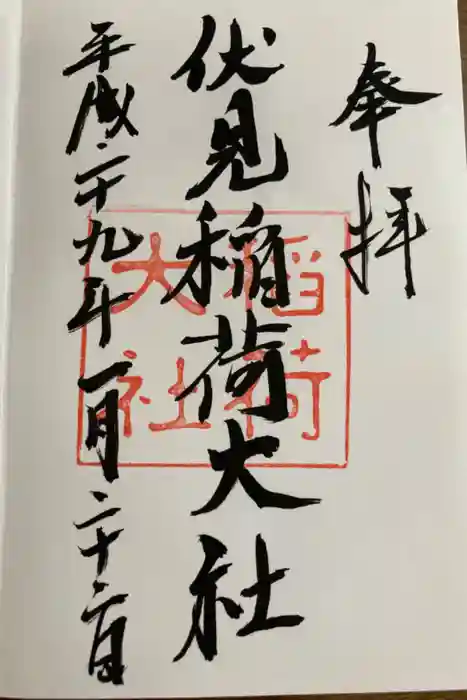 奉拝
伏見稲荷大社
平成二十九年一月二十二日
稲荷
大社